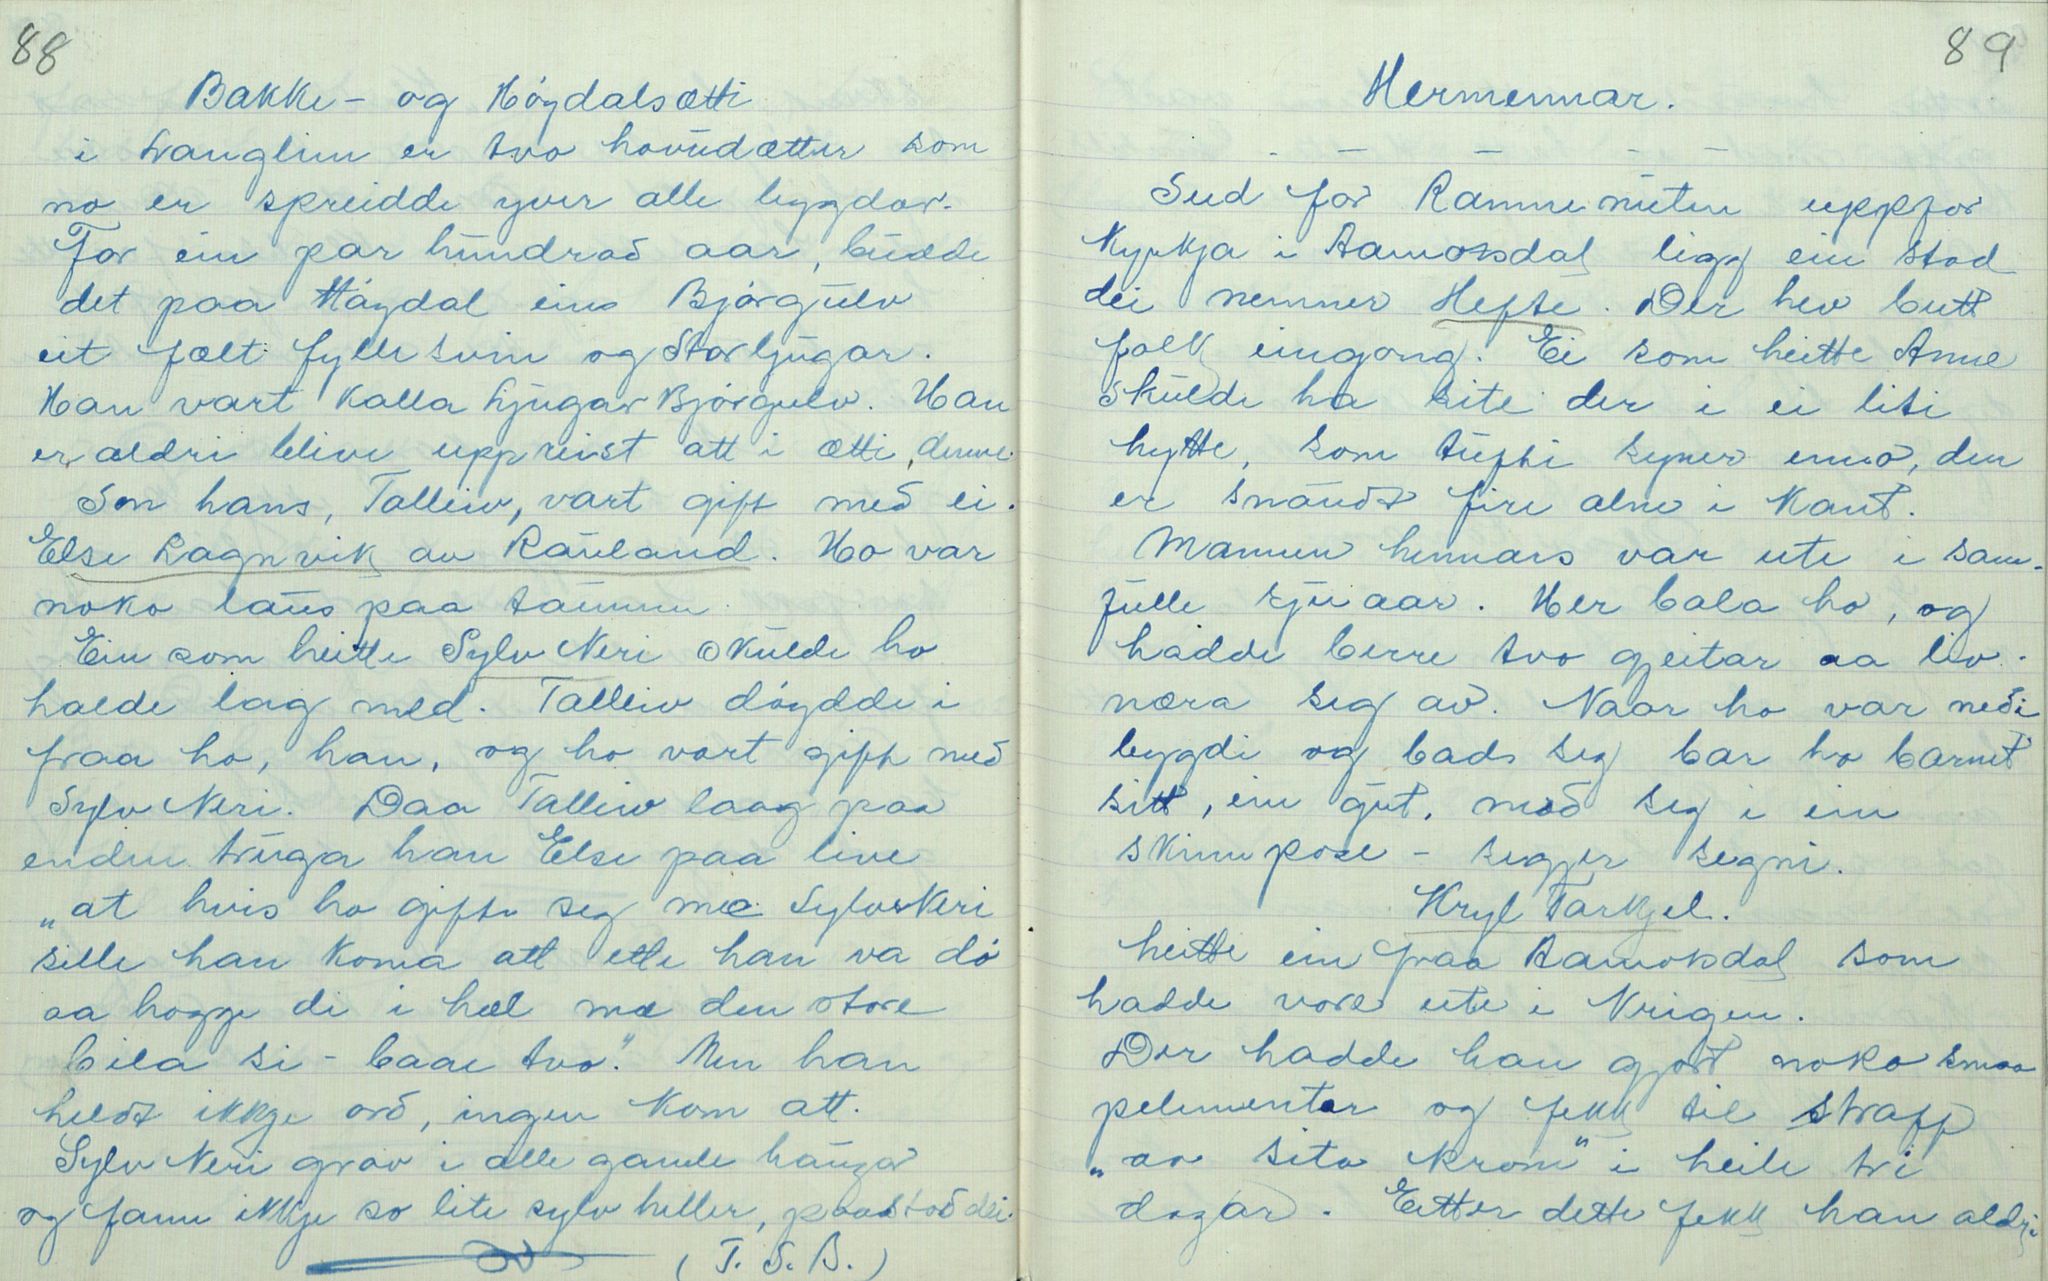 88
Bakke- og Høydalsætti
i Grunglim er tvo hovudætter som
no er spreidde yver alle bygdar.
For ein par hundrad aar, budde
det paa Høydal ein Bjørgulv
eit fælt fyllesvin og Storljugar.
Han vart kalla Ljugar Bjørgulv. Han
er aldri blive uppreist att i ætti, denne.
Son hans, Talleiv, vart gift med ei
Else Lagnvik av Rauland. Ho var
noko laus paa taumen.
Ein som heitte Sylv Neri skulde ho
halde lag med. Talleiv døydde i
fraa ho, han, og ho vart gift med
Sylv Neri. Daa Talleiv laag paa
enden truga han Else paa live
„at hvis ho gifte seg mæ Sylv Neri
sille han koma att ette han va dø
aa hogge di i hæl mæ den store
bila si - baae tvo." Men han
heldt ikkje ord, ingen kom att.
Sylv Neri grov i alle gamle haugar
og fann ikkje so lite sylv heller, paastod dei.
(T. S. B.)
89
Hermennar.
Sud for Rammenuten uppfor
Kyrkja i Aamotsdal ligg ein stad
dei nemner Hefte. Der hev butt
folk eingong. Ei som heitte Anne
skulde ha site der i ei liti
hytte, som tufti syner enno, den
er snaudt fire alne i Kant.
Mannen hennars var ute i sam-
fulle sju aar. Her bala ho, og
hadde berre tvo gjeitar aa liv-
næra seg av. Naar ho var nedi
bygdi og bads seg bar ho barnet
sitt, ein gut, med seg i ein
skinnpose - segjer segni.
Kryl Tarkjel.
heitte ein fraa Aamotsdal som
hadde vore ute i Krigen.
Der hadde han gjort noko smaa
pelimentar og fekk til straff
„aa sita krom" i heile tri
dagar. Etter dette fekk han aldri